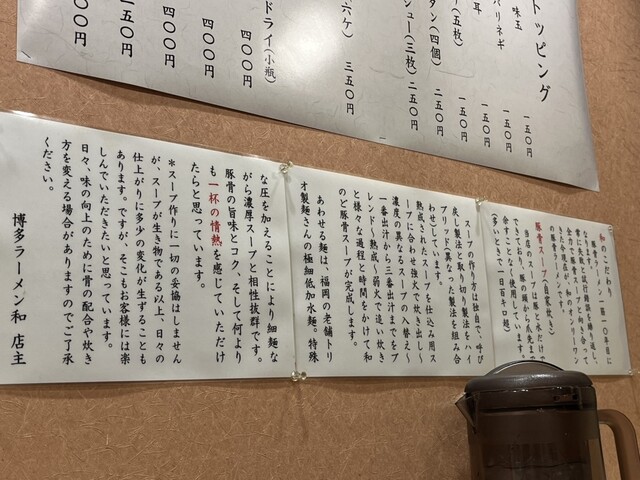 トッピング
味玉 一五〇円
バリネギ 一五〇円
耳 一五〇円
(五枚) 一五〇円
タン(四個) 二五〇円
シュー(三枚) 二五〇円
六ケ) 三五〇円
ドライ(小瓶)
四〇〇円
四〇〇円
四〇〇円
一五〇円
〇〇円
和のこだわり
豚骨スープ(自家炊き)
当店のスープは豚と水だけで
スープの作り方は独自で、呼び
戻し製法と取り切り製法をハイ
ブリッド。異なった製法を組み合
わせしています。
熟成されたスープを仕込み用ス
ープに合わせ強火で炊き出し〜
濃度の異なるスープの入れ替え〜
一番出汁から三番出汁までをブ
レンド〜熟成〜弱火で追い炊き
と様々な過程と時間をかけて和
のど豚骨スープが完成します。
あわせる麺は、福岡の老舗トリ
オ製麺さんの極細低加水麺。特殊
な圧を加えることにより細麺な
がら濃厚スープと相性抜群です。
豚骨の旨味とコク、そして何より
も一杯の情熱を感じていただけ
たらと思っています。
*スープ作りに一切の妥協はしません
が、スープが生き物である以上、日々の
仕上がりに多少の変化が生ずることも
あります。ですが、そこもお客様には楽
しんでいただきたいと思っています。
日々、味の向上のために骨の配合や炊き
方を変える場合がありますのでご了承
ください。
博多ラーメン和 店主